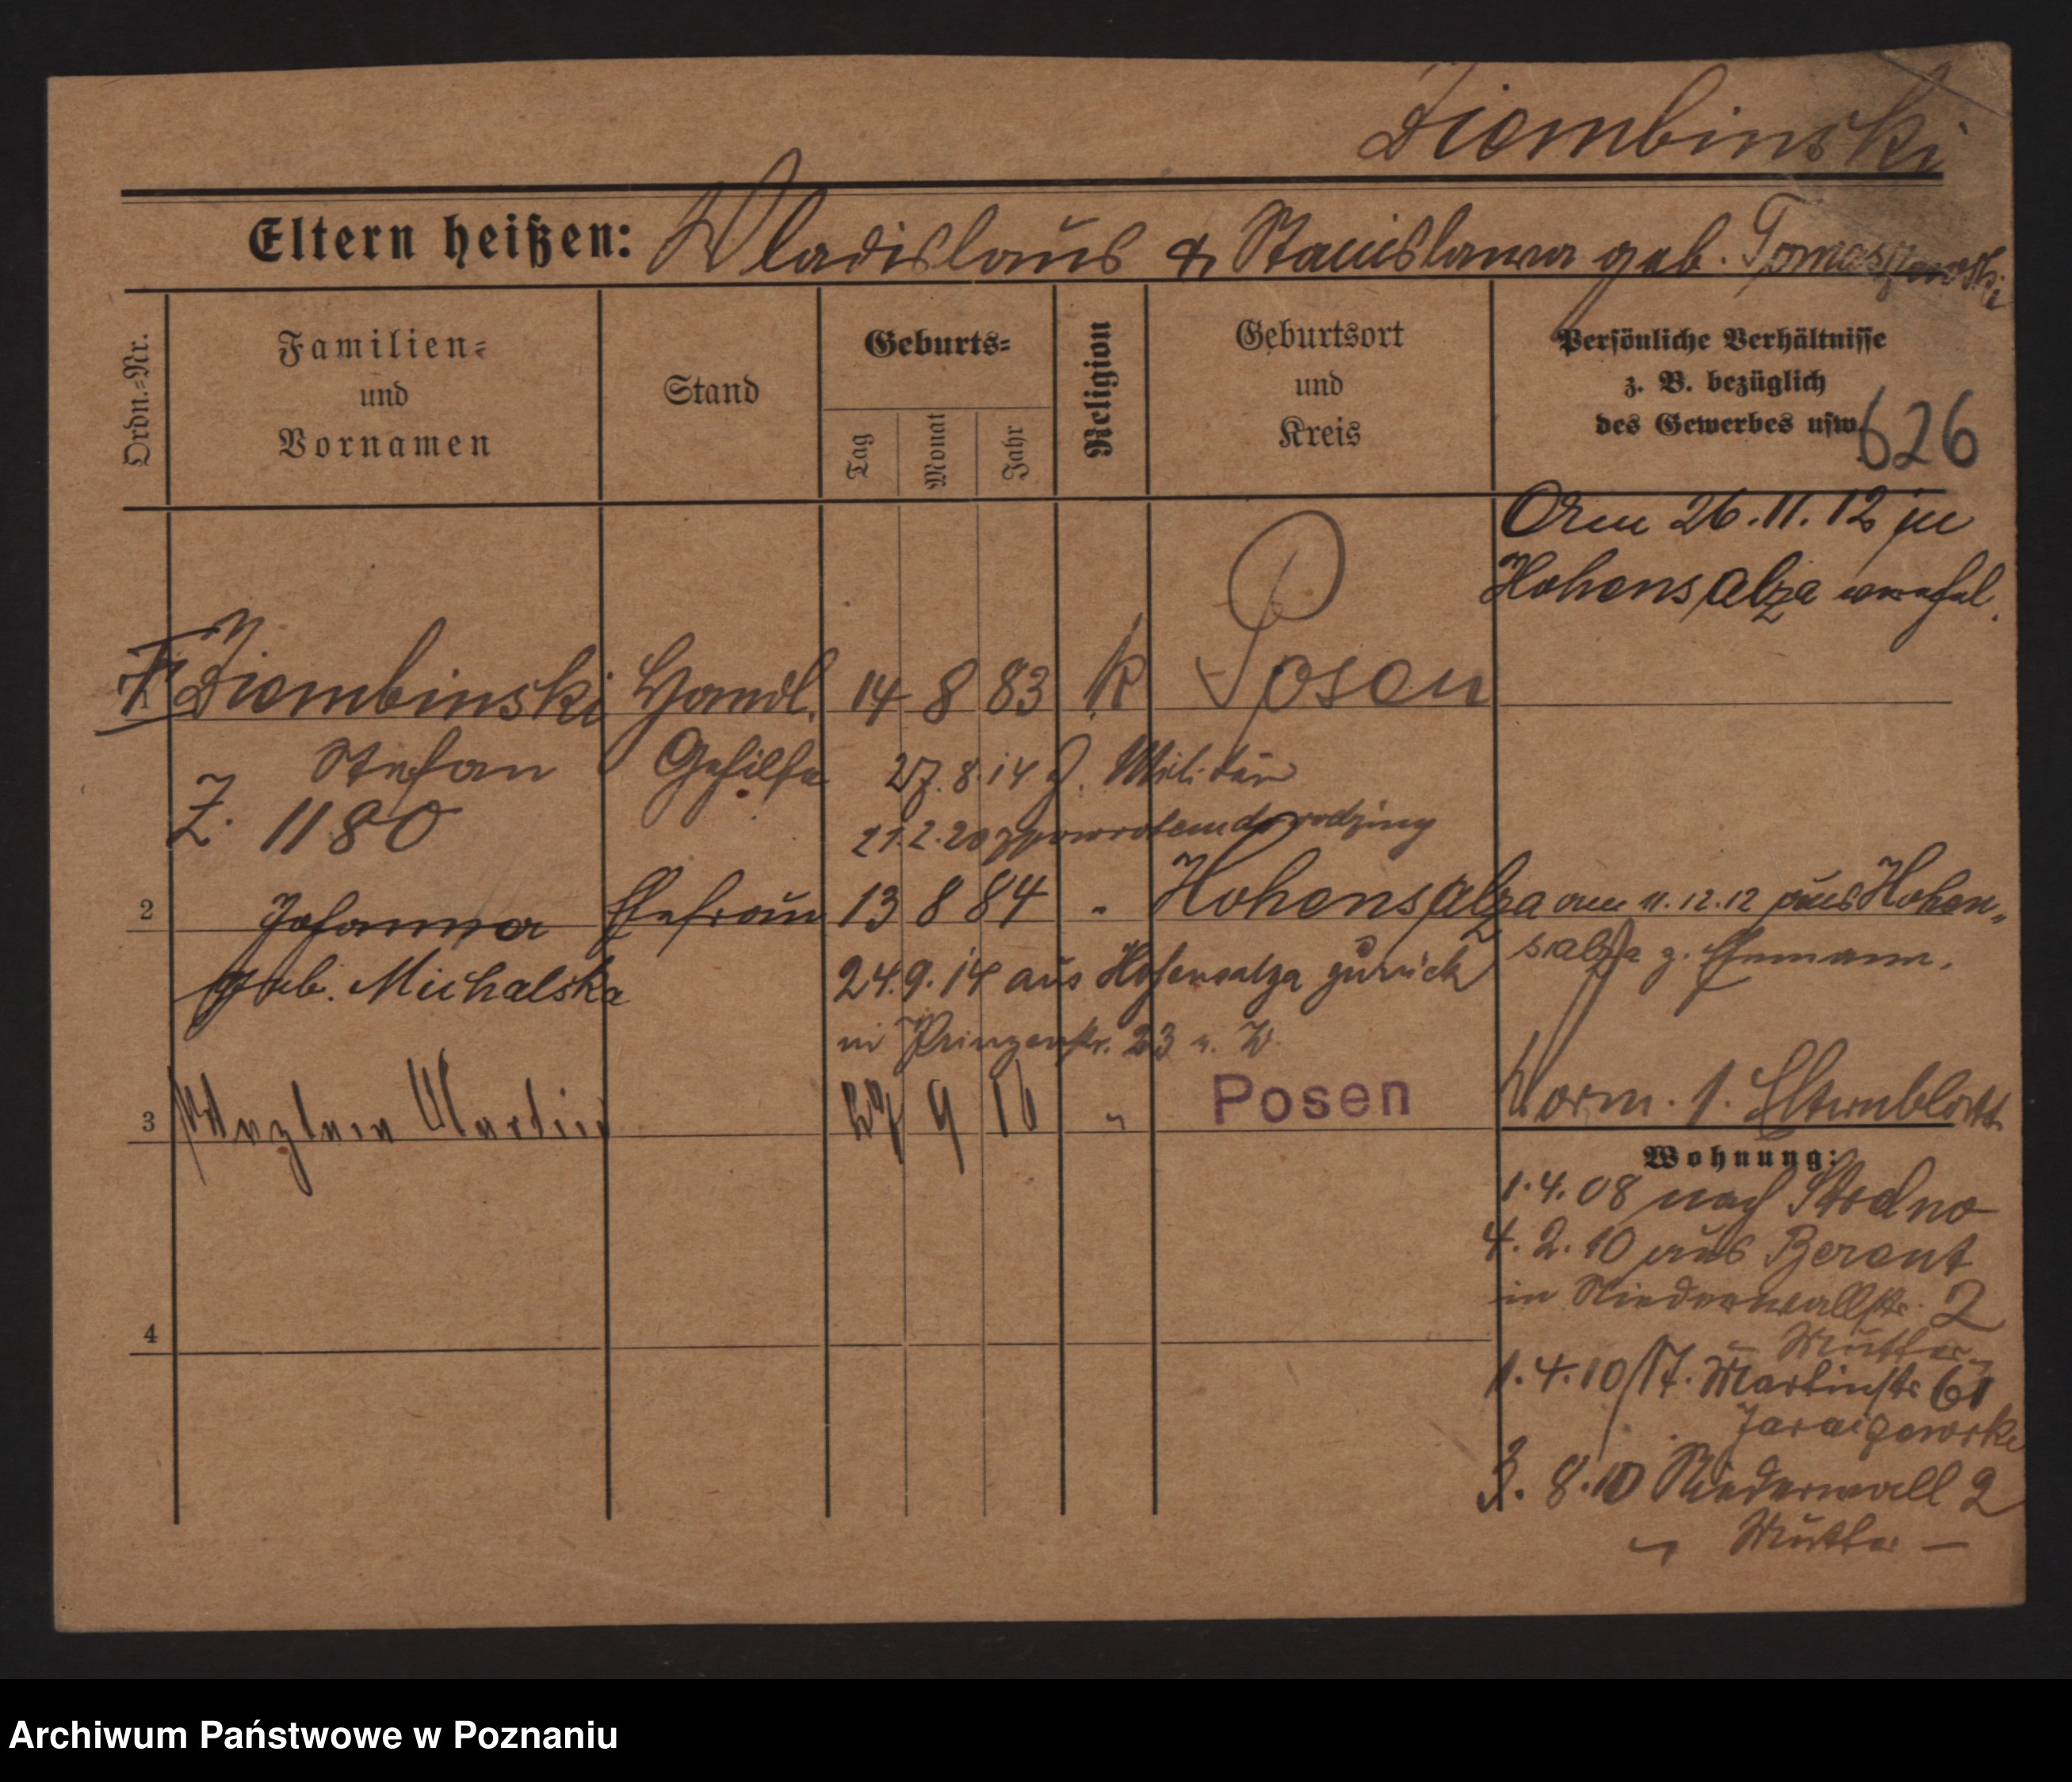 Ziembinski
Eltern heißen: Wladislaus & Stanislawa geb. Tomaszewski
Ordn.-Nr.
Familien-
und
Vornamen
Stand
Geburts-
Tag
Monat
Jahr
Religion
Geburtsort
und
Kreis
Persönliche Verhältnisse
z. B. bezüglich
des Gewerbes usw.
626
Am 26.11.12 in
Hohensalza verehel.
Ziembinski Handl. 14 8 83 k Posen
Stefan Gehilfe 27.8.14 z. Militär
Z. 1180
21.2.20 z powrotem do rodziny
2 Johanna Ehefrau 13 8 84 " Hohensalza am 11.12.12 aus Hohen-
salza z. Ehemann.
geb. Michalska 24.9.14 aus Hohensalza zurück
in Prinzenstr. 23 u. W.
3 Martin 9 16 " Posen
Vorm. s. Elternblatt
Wohnung:
1.4.08 nach Strelno
4.2.10 aus Berent
in Niederwallstr. 2
- Mutter -
1.4.10/17. Martinstr 61
3.8.10 Niederwall 2
- Mutter -
4
Archiwum Państwowe w Poznaniu